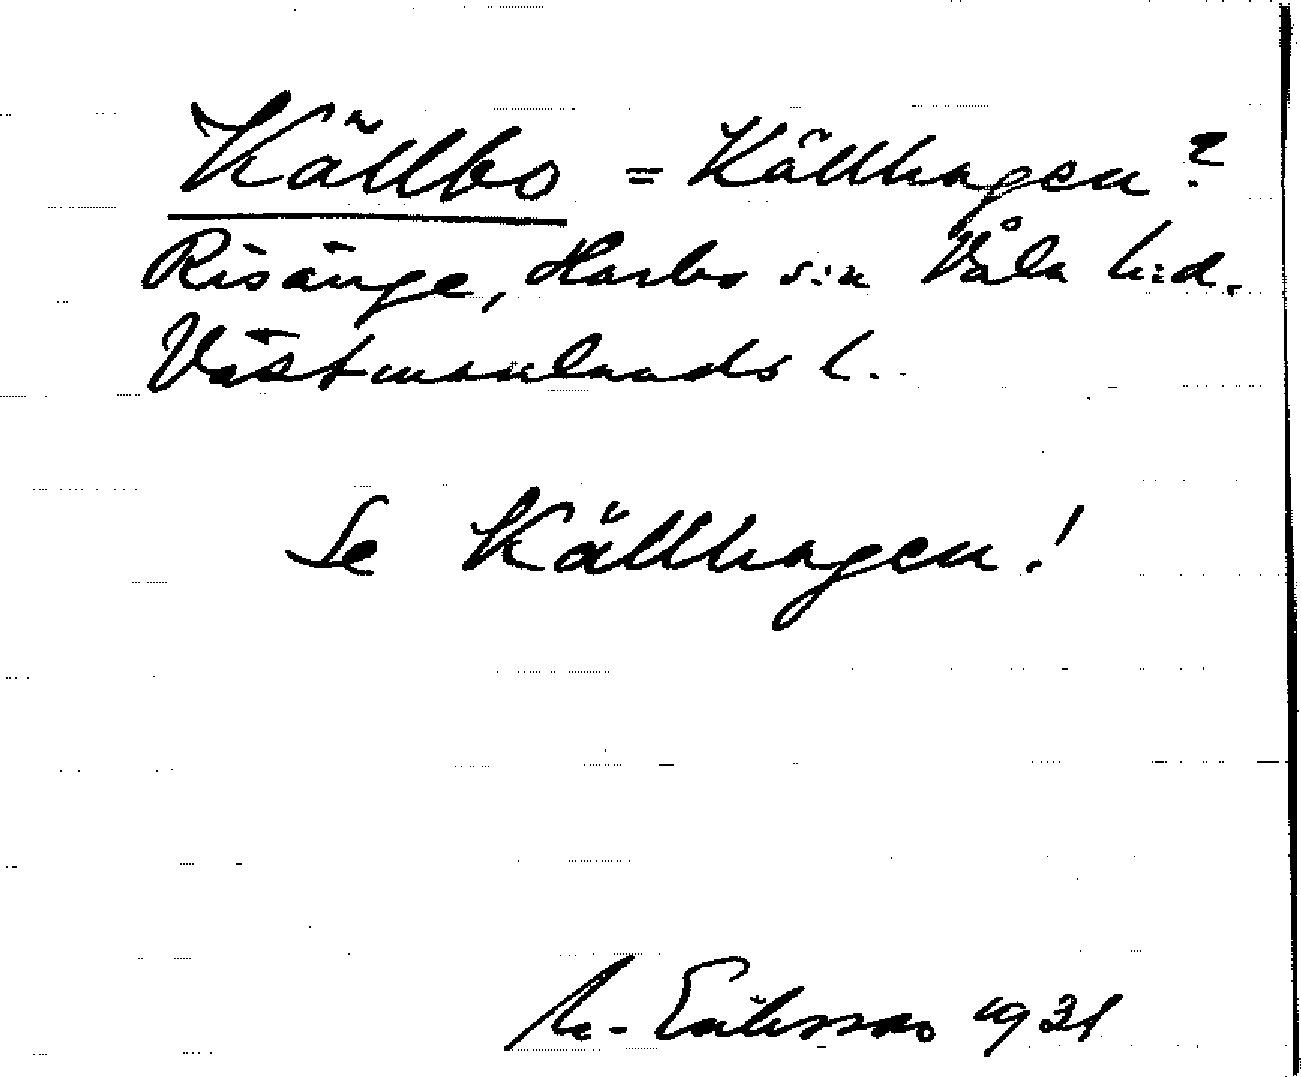 Källbo = Källhagen?
Risänge, Harbo s:n Våla h:d.
Västmanlands l.
Se Källhagen!
M. Eriksson 1931